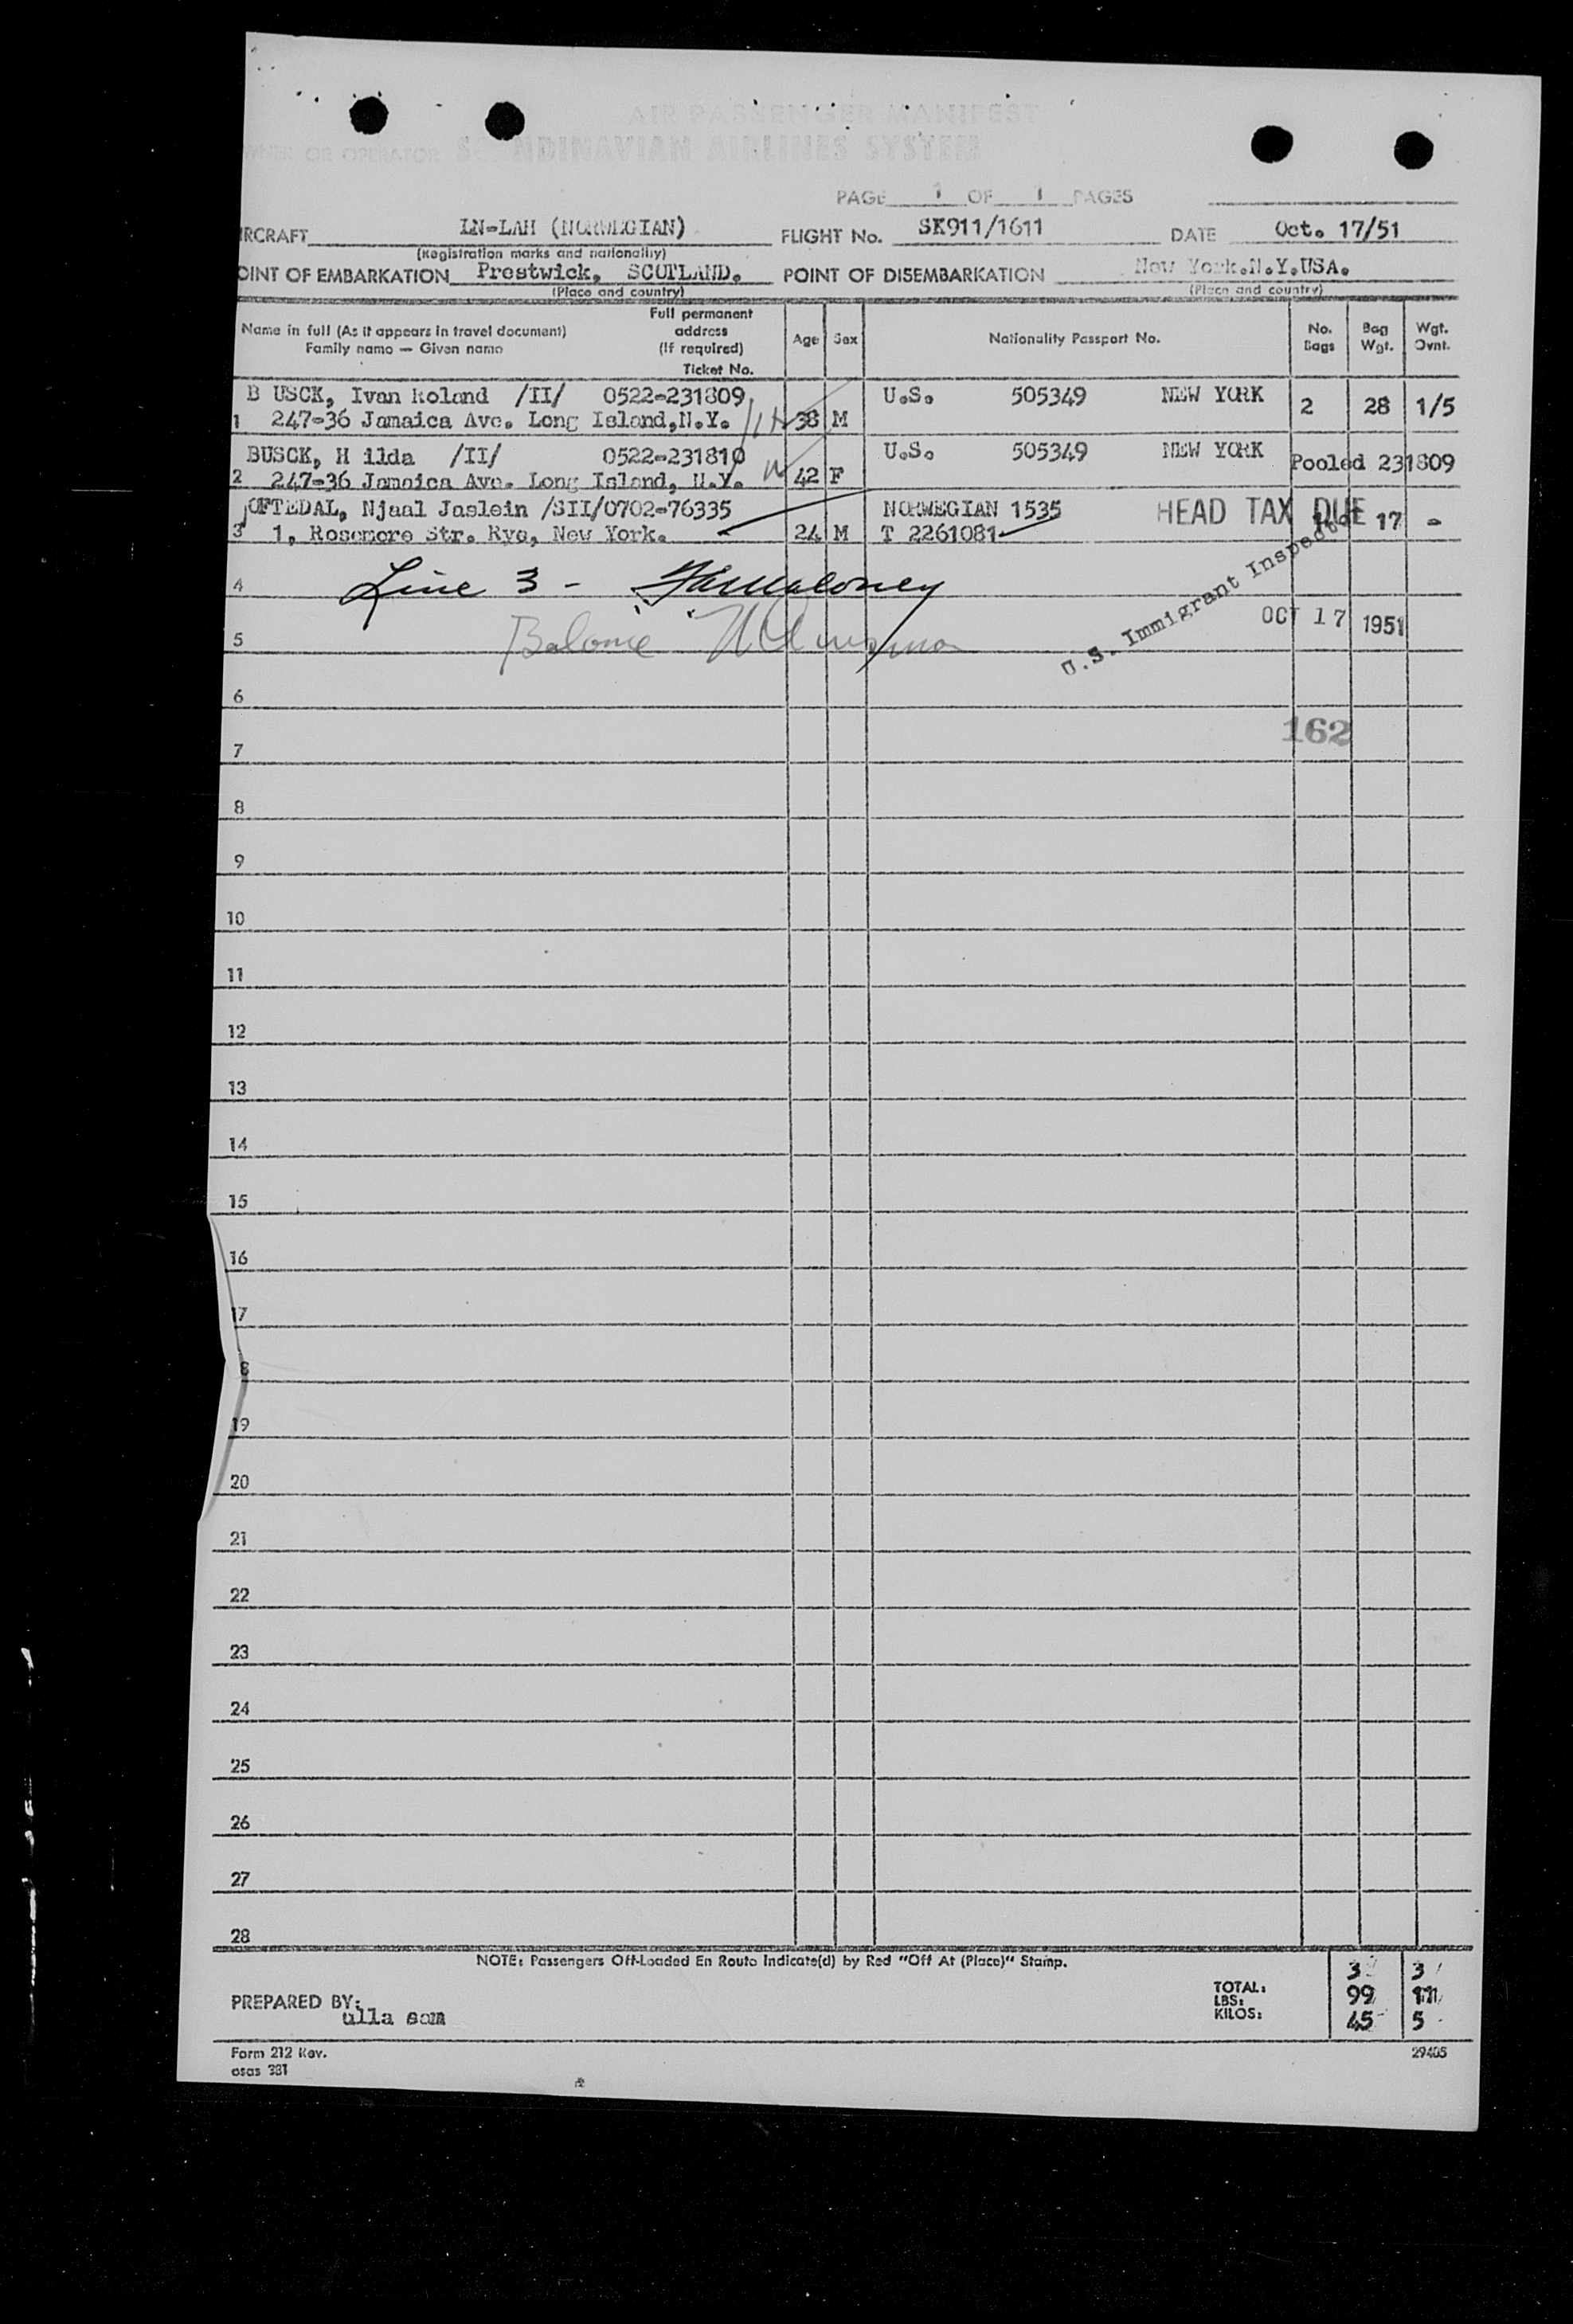 AIR PASSENGER MANIFEST
OWNER OR OPERATOR SCANDINAVIAN AIRLINES SYSTEM
PAGE 1 OF 1 PAGES
IRCRAFT LN-LAH (NORWEGIAN) FLIGHT No. SK911/1611 DATE Oct. 17/51
(Registration marks and nationality)
OINT OF EMBARKATION Prestwick, SCOTLAND. POINT OF DISEMBARKATION New York.N.Y.USA.
(Place and country) (Place and country)
Name in full (As it appears in travel document) Family name — Given name Full permanent address (If required) Ticket No. Age Sex Nationality Passport No. No. Bags Bag Wgt. Wgt. Ovnt.
B USCK, Ivan Roland /II/ 0522-231809 U.S. 505349 NEW YORK 2 28 1/5
1 247-36 Jamaica Ave. Long Island,N.Y. 38 M
BUSCK, H ilda /II/ 0522-231810 U.S. 505349 NEW YORK Pooled 231809
2 247-36 Jamaica Ave. Long Island, N.Y. 42 F
OFTEDAL, Njaal Jaslein /SII/0702-76335 NORWEGIAN 1535 HEAD TAX DUE 17 -
3 1, Rosemere Str. Rye, New York. 24 M T 2261081
4 Line 3 -
U.S. Immigrant Inspector
OCT 17 1951
5
6
162
7
8
9
10
11
12
13
14
15
16
17
8
19
20
21
22
23
24
25
26
27
28
NOTE: Passengers Off-Loaded En Route Indicate(d) by Red "Off At (Place)" Stamp.
TOTAL: 3 3
PREPARED BY: LBS: 99 11
ulla som KILOS: 45 5
Form 212 Rev. 29405
osas 381